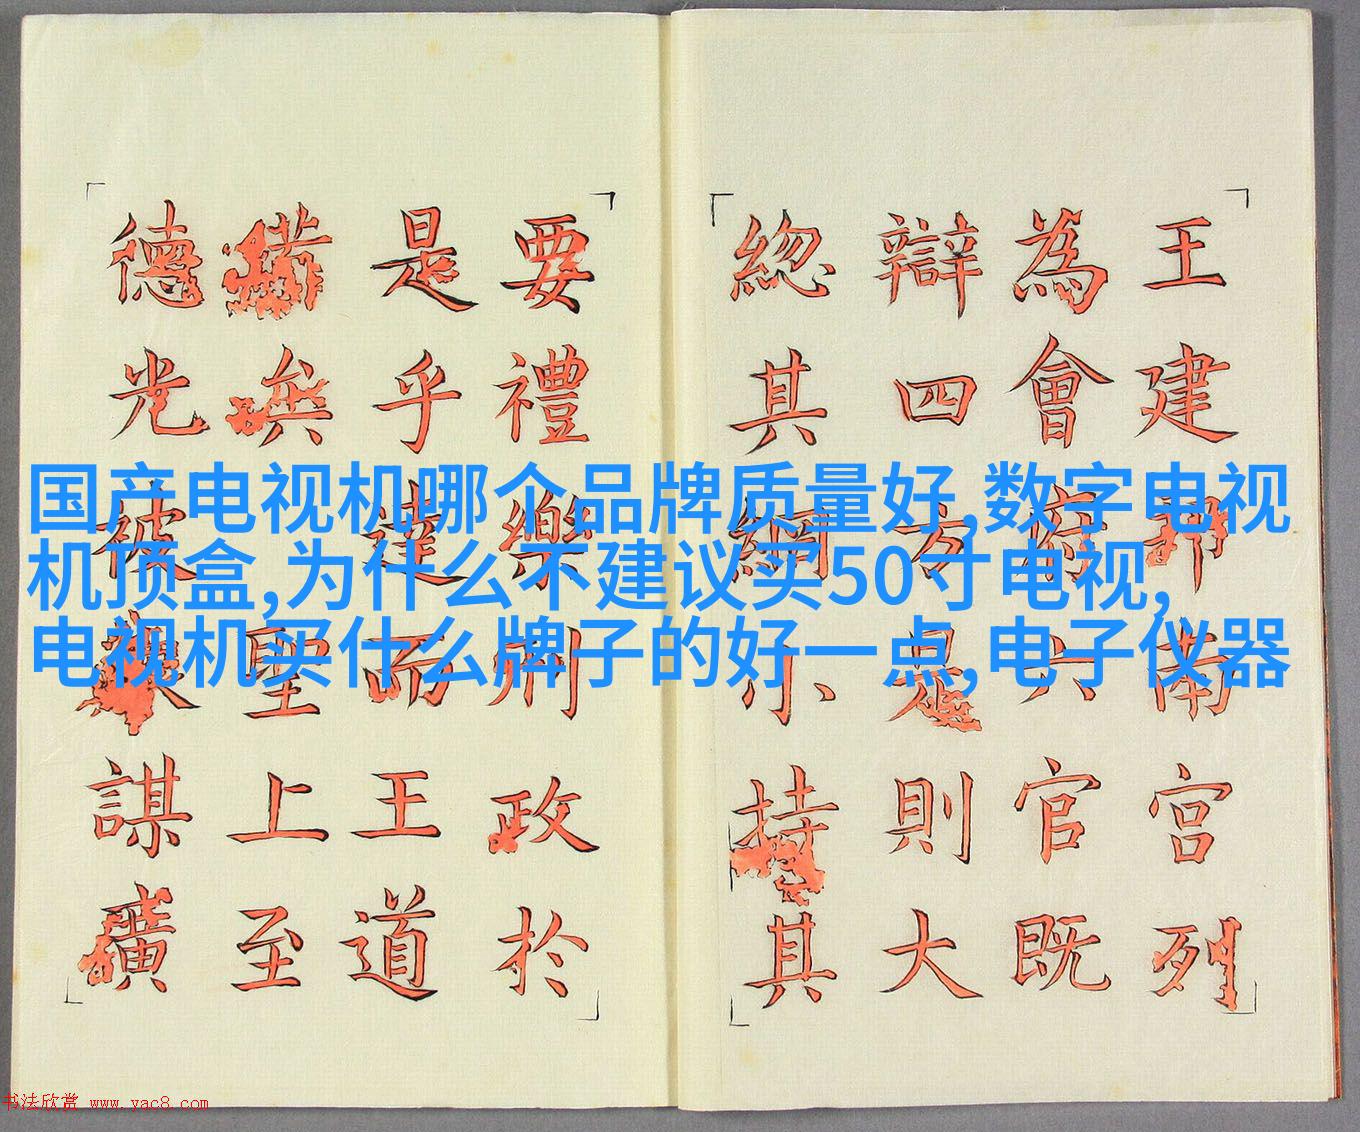 国产电视机哪个品牌质量好,数字电视
机顶盒,为什么不建议买50寸电视,
电视机买什么牌子的好一点,电子仪器
王建邦南宮列
為會府六官既
辯四方是則大
緫其綱小持其
要禮樂刑政於
是乎達而王道
備矣聖上至
德光被睿謀廣
书法欣赏 www.yac8.com